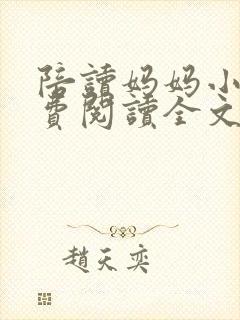 陪讀妈妈小
費閱讀全文
趙天奕